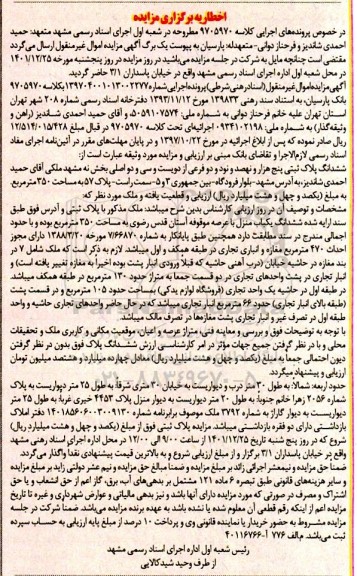 اخطاریه برگزاری مزایده
در خصوص پرونده‌های اجرایی کلاسه ۹۷۰۵۹۷۰ مطروحه در شعبه اول اجرای اسناد رسمی مشهد متعهد: حمید
احمدی شاندیز و فرحناز دولتی- متعهدله: پارسیان به پیوست یک برگ آگهی مزایده اموال غیرمنقول ارسال می‌گردد
مقتضی است چنانچه مایل به شرکت در جلسه مزایده می‌باشید در روز مزایده در روز پنجشنبه مورخه ۱۴۰۱/۱۲/۲۵
در محل شعبه اول اداره اجرای اسناد رسمی مشهد واقع در خیابان پاسداران ۳/۱ حاضر گردید.
آگهی مزایده اموال غیرمنقول (اسناد رهنی شرطی) پرونده اجرایی شماره ۱۳۹۷۰۴۰۰۱۰۱۳۰۰۲۲۷۷ بکلاسه ۹۷۰۵۹۷۰
بانک پارسیان، به استناد سند رهنی ۱۳۹۸۳۳ مورخ ۱۳۹۳/۱۱/۱۲ دفترخانه اسناد رسمی شماره ۲۰۸ شهر تهران
استان تهران علیه خانم فرحناز دولتی به شماره‌ملی ۵۰۵۹۱۰۷۵۷۴، و آقای حمید احمدی شاندیز (راهن و
وثیقه‌گذار) به شماره‌ملی ۰۹۳۴۱۰۲۱۹۸ اجرائیه‌ای تحت کلاسه ۹۷۰۵۹۷۰ در قبال مبلغ ۱۲/۵۱۴/۰۱۵/۴۲۸
ریال صادر نموده که پس از ابلاغ اجرائیه در مورخ ۱۳۹۷/۱۰/۲۲ و در پایان مهلت‌های مقرر در آئین‌نامه اجرای مفاد
اسناد رسمی لازم‌الاجرا و تقاضای بانک مبنی بر ارزیابی و مزایده مورد وثیقه عبارت است از:
ششدانگ پلاک ثبتی پنج هزار و نهصد و نود و دو فرعی از دویست و سی و دو اصلی بخش نه مشهد ملکی آقای حمید
احمدی شاندیز، به آدرس مشهد-بلوار فرودگاه-بین جمهوری ۳ و ۵-سمت راست-پلاک ۵۷ به مساحت ۳۵۰ مترمربع،
به مبلغ (یکصد و چهل و هشت میلیارد ریال) ارزیابی و قطعیت یافته و ملک مورد نظر که:
مشخصات و توصیف آن در روز ارزیابی کارشناس بدین شرح میباشد: ملک مذکور با پلاک ثبتی و آدرس فوق طبق
سند ارایه شده ششدانگ یکباب منزل با عرصه موقوفه آستان قدس رضوی به مساحت ۳۵۰ مترمربع بوده و با حدود
اجمالی مندرج در سند مطابقت دارد همچنین طبق پایانکار به شماره ۷/۶۶۸۷۰ مورخه ۱۳۸۸/۳/۲۰ دارای مجوز
احداث ۴۷۰ مترمربع مغازه و انباری تجاری در طبقه همکف و اول میباشد. لازم به ذکر است که ملک شامل ۷
بند مغازه در حاشیه خیابان (درب آهنی حاشیه که قبلا ورودی انبار پشت بوده اخیراً به مغازه تغییر یافته است) و
انبار تجاری در پشت واحدهای تجاری در دو قسمت جمعا به متراژ حدود ۱۳۰ مترمربع در طبقه همکف میباشد.
در طبقه اول در حاشیه یک واحد تجاری (فروشگاه لوازم یدکی) بمساحت حدود ۱۰۵ مترمربع و در قسمت پشت
(طبقه بالای انبار تجاری) حدود ۶۶ مترمربع انبار تجاری میباشد که در حال حاضر واحدهای تجاری حاشیه و واحد
طبقه اول در تصرف غیر و انبار تجاری پشت مغازه‌ها در تصرف مالک میباشد.
با توجه به توضیحات فوق و بررسی و معاینه فنی، متراژ عرصه و اعیان، موقعیت مکانی و کاربری ملک و تحقیقات
محلی و با در نظر گرفتن جمیع جهات مؤثر در امر کارشناسی ارزش ششدانگ پلاک فوق بدون در نظر گرفتن
دیون احتمالی جمعا به مبلغ (یکصد و چهل و هشت میلیارد ریال) معادل چهارده میلیارد و هشتصد میلیون تومان
ارزیابی و پیشنهاد میگردد.
حدود اربعه: شمالا: به طول ۳۰ متر درب و دیواریست به خیابان ۳۰ متری شرقاً به طول ۲۵ متر دیواریست به پلاک
شماره ۲۰۵۶ زهرا خاتم جنوباً: به طول ۲۰ متر دیواریست به دیوار منزل پلاک ۴۴۵۳ خیری غرباً: به طول ۲۵ متر
دیواریست به دیوار گاراژ به شماره ۳۷۹۲ ملک موصوف برابرنامه شماره ۱۴۰۱۸۵۶۰۶۰۰۳۰۰۹۱۳۰ دفتر املاک
بازداشتی دارای دو فقره بازداشتی میباشد. مزایده پلاک ثبتی فوق از مبلغ (یکصد و چهل و هشت میلیارد ریال)
شروع که در روز پنج شنبه تاریخ ۱۴۰۱/۱۲/۲۵ از ساعت ۹/۰۰ الی ۱۲/۰۰ در محل اداره اجرای اسناد رهنی مشهد
واقع در خیابان پاسداران ۳/۱ برگزار و از مبلغ ارزیابی شروع و به بالاترین قیمت پیشنهادی نقدا واگذار می‌گردد.
ضمنا حق مزایده و نیم‌عشر اجرائی زائد بر مبلغ مزایده و ضمنا مبالغ حق مزایده و نیم عشر دولتی زاید بر مبلغ مزایده
و سایر هزینه‌های قانونی طبق تبصره ۶ ماده ۱۲۱ مشتمل بر بدهی‌های آب، برق، گاز اعم از حق انشعاب و یا حق
اشتراک و مصرف در صورتی که مورد مزایده دارای آنها باشد و نیز بدهی مالیاتی و عوارض شهرداری و غیره تا تاریخ
مزایده اعم از اینکه رقم قطعی آن معلوم شده یا نشده باشد به عهده برنده مزایده می‌باشد. ضمنا شرکت در جلسه
مزایده مشروط به حضور خریدار یا نماینده قانونی وی و پرداخت ۱۰ درصد از مبلغ پایه ارزیابی به حساب سپرده
ثبت می‌باشد. م‌الف ۷۷۶ آ-۴۰۱۱۶۷۶۶
رئیس شعبه اول اداره اجرای اسناد رسمی مشهد
از طرف وحید شیدکلایی